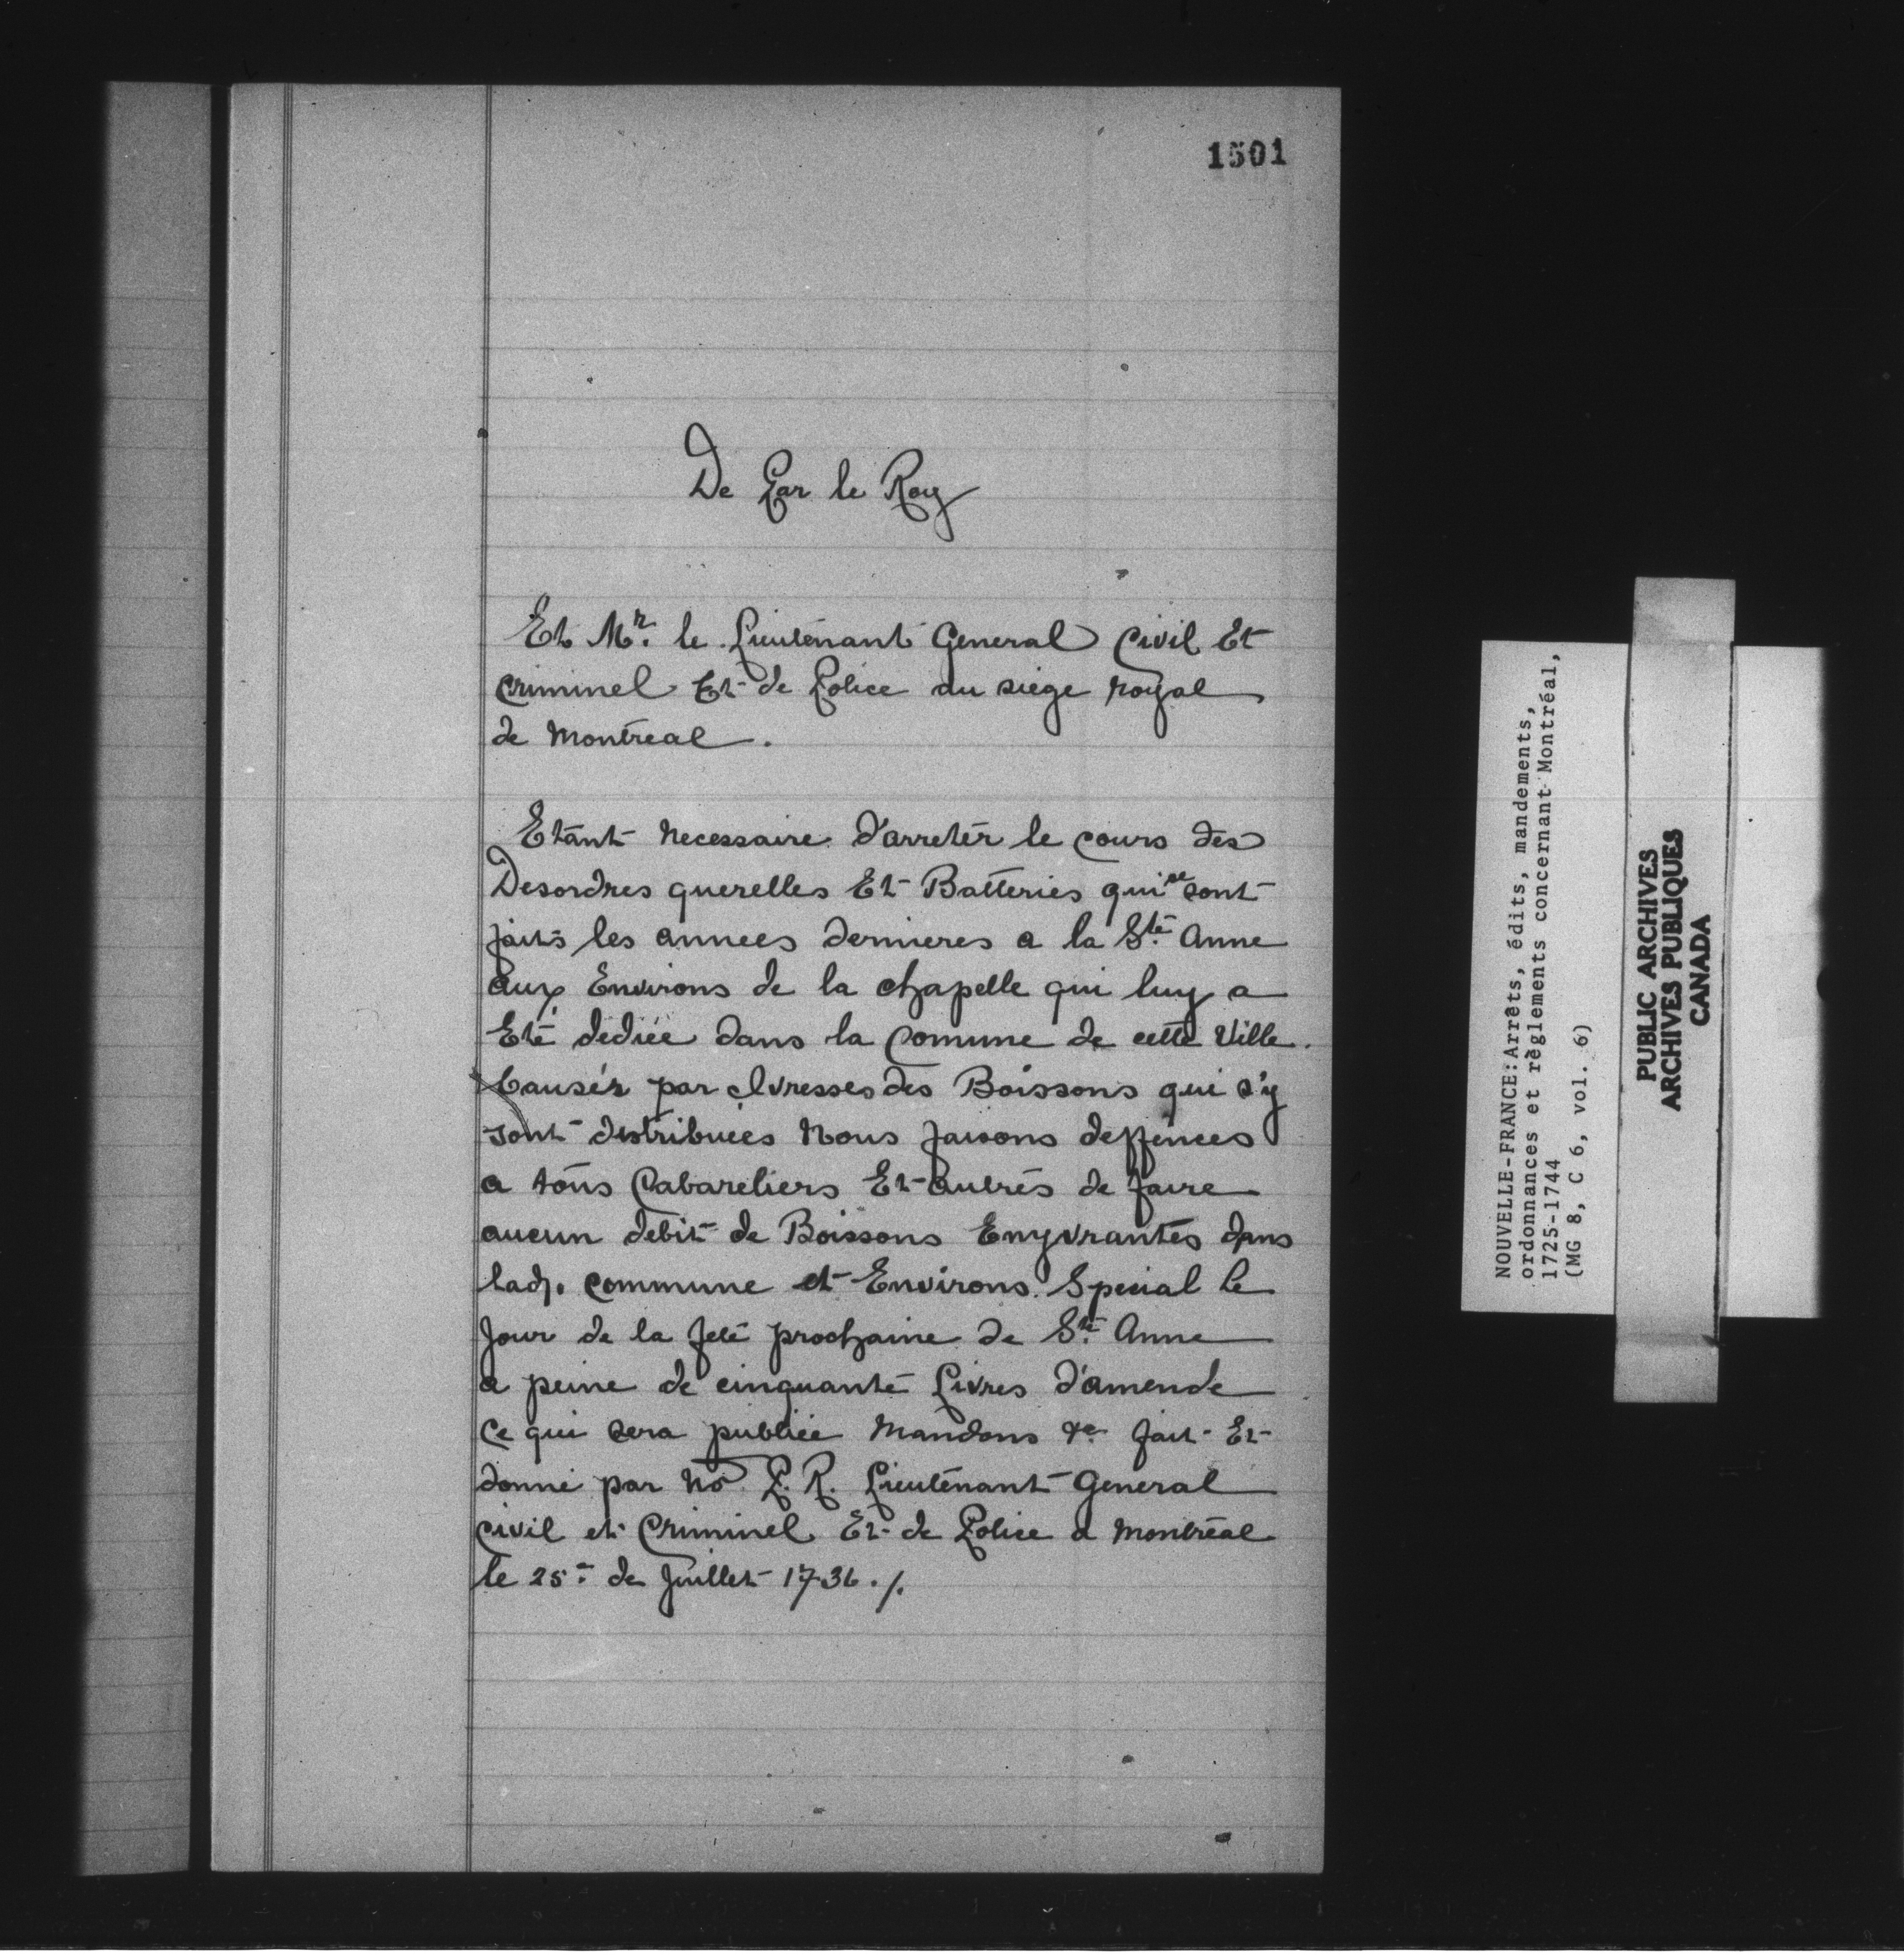 1501
De Par le Roy
Et Mr. le Lieutenant General Civil Et
Criminel Et de Police au siege royal
de Montreal.
Etant Necessaire d'arreter le cours des
Desordres querelles Et Batteries qui se sont
faits les annees dernieres a la Ste Anne
aux Environs de la chapelle qui luy a
Eté dediée dans la Comune de cette Ville.
Causés par Ivresses des Boissons qui s'y
sont distribuées Nous faisons deffences
a tous Cabaretiers Et autres de faire
aucun debit de Boissons Enyvrantes dans
lad. commune et Environs. Special le
jour de la fete prochaine de Ste Anne
a peine de cinquante Livres d'amende
Ce qui sera publiée Mandons &c. fait Et
donné par No. P. R. Lieutenant General
civil et Criminel Et de Police a Montreal
le 25e de Juillet 1736./.
NOUVELLE-FRANCE: Arrêts, édits, mandements,
ordonnances et règlements concernant Montréal,
1725-1744
(MG 8, C 6, vol. 6)
PUBLIC ARCHIVES
ARCHIVES PUBLIQUES
CANADA